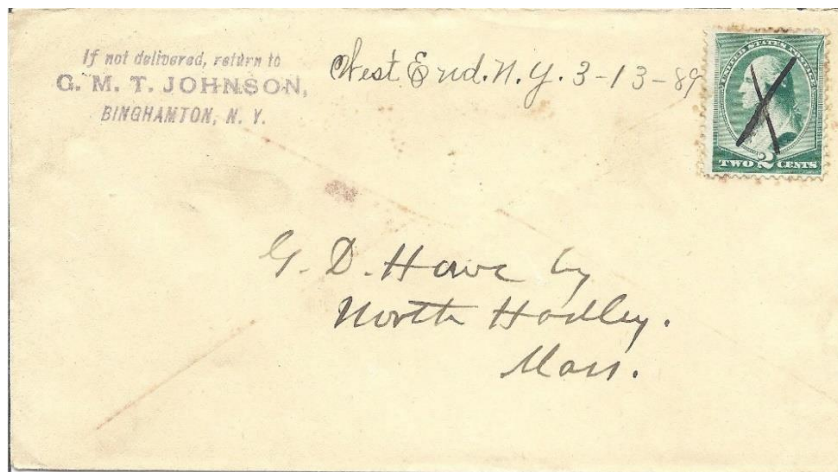 If not delivered, return to
G. M. T. JOHNSON,
BINGHAMTON, N. Y.
West End. N. Y. 3-13-89
UNITED STATES POSTAGE
TWO 2 CENTS
G. D. Howe
North Hadley.
Mass.